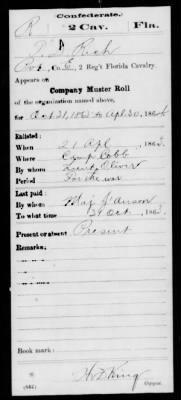 Confederate.
R 2 Cav. Fla.
Rich
Pvt, Co. E, 2 Reg't Florida Cavalry.
Appears on
Company Muster Roll
of the organization named above,
for Oct 31, 1863 to Apl 30, 1864
Enlisted:
When 21 Apl, 186
Where Camp Cobb
By whom Lieut Oliver
Period For the war
Last paid:
By whom Maj
To what time 31 Oct, 1863
Present or absent Present
Remarks:
Book mark:
King
(642) Copyist.